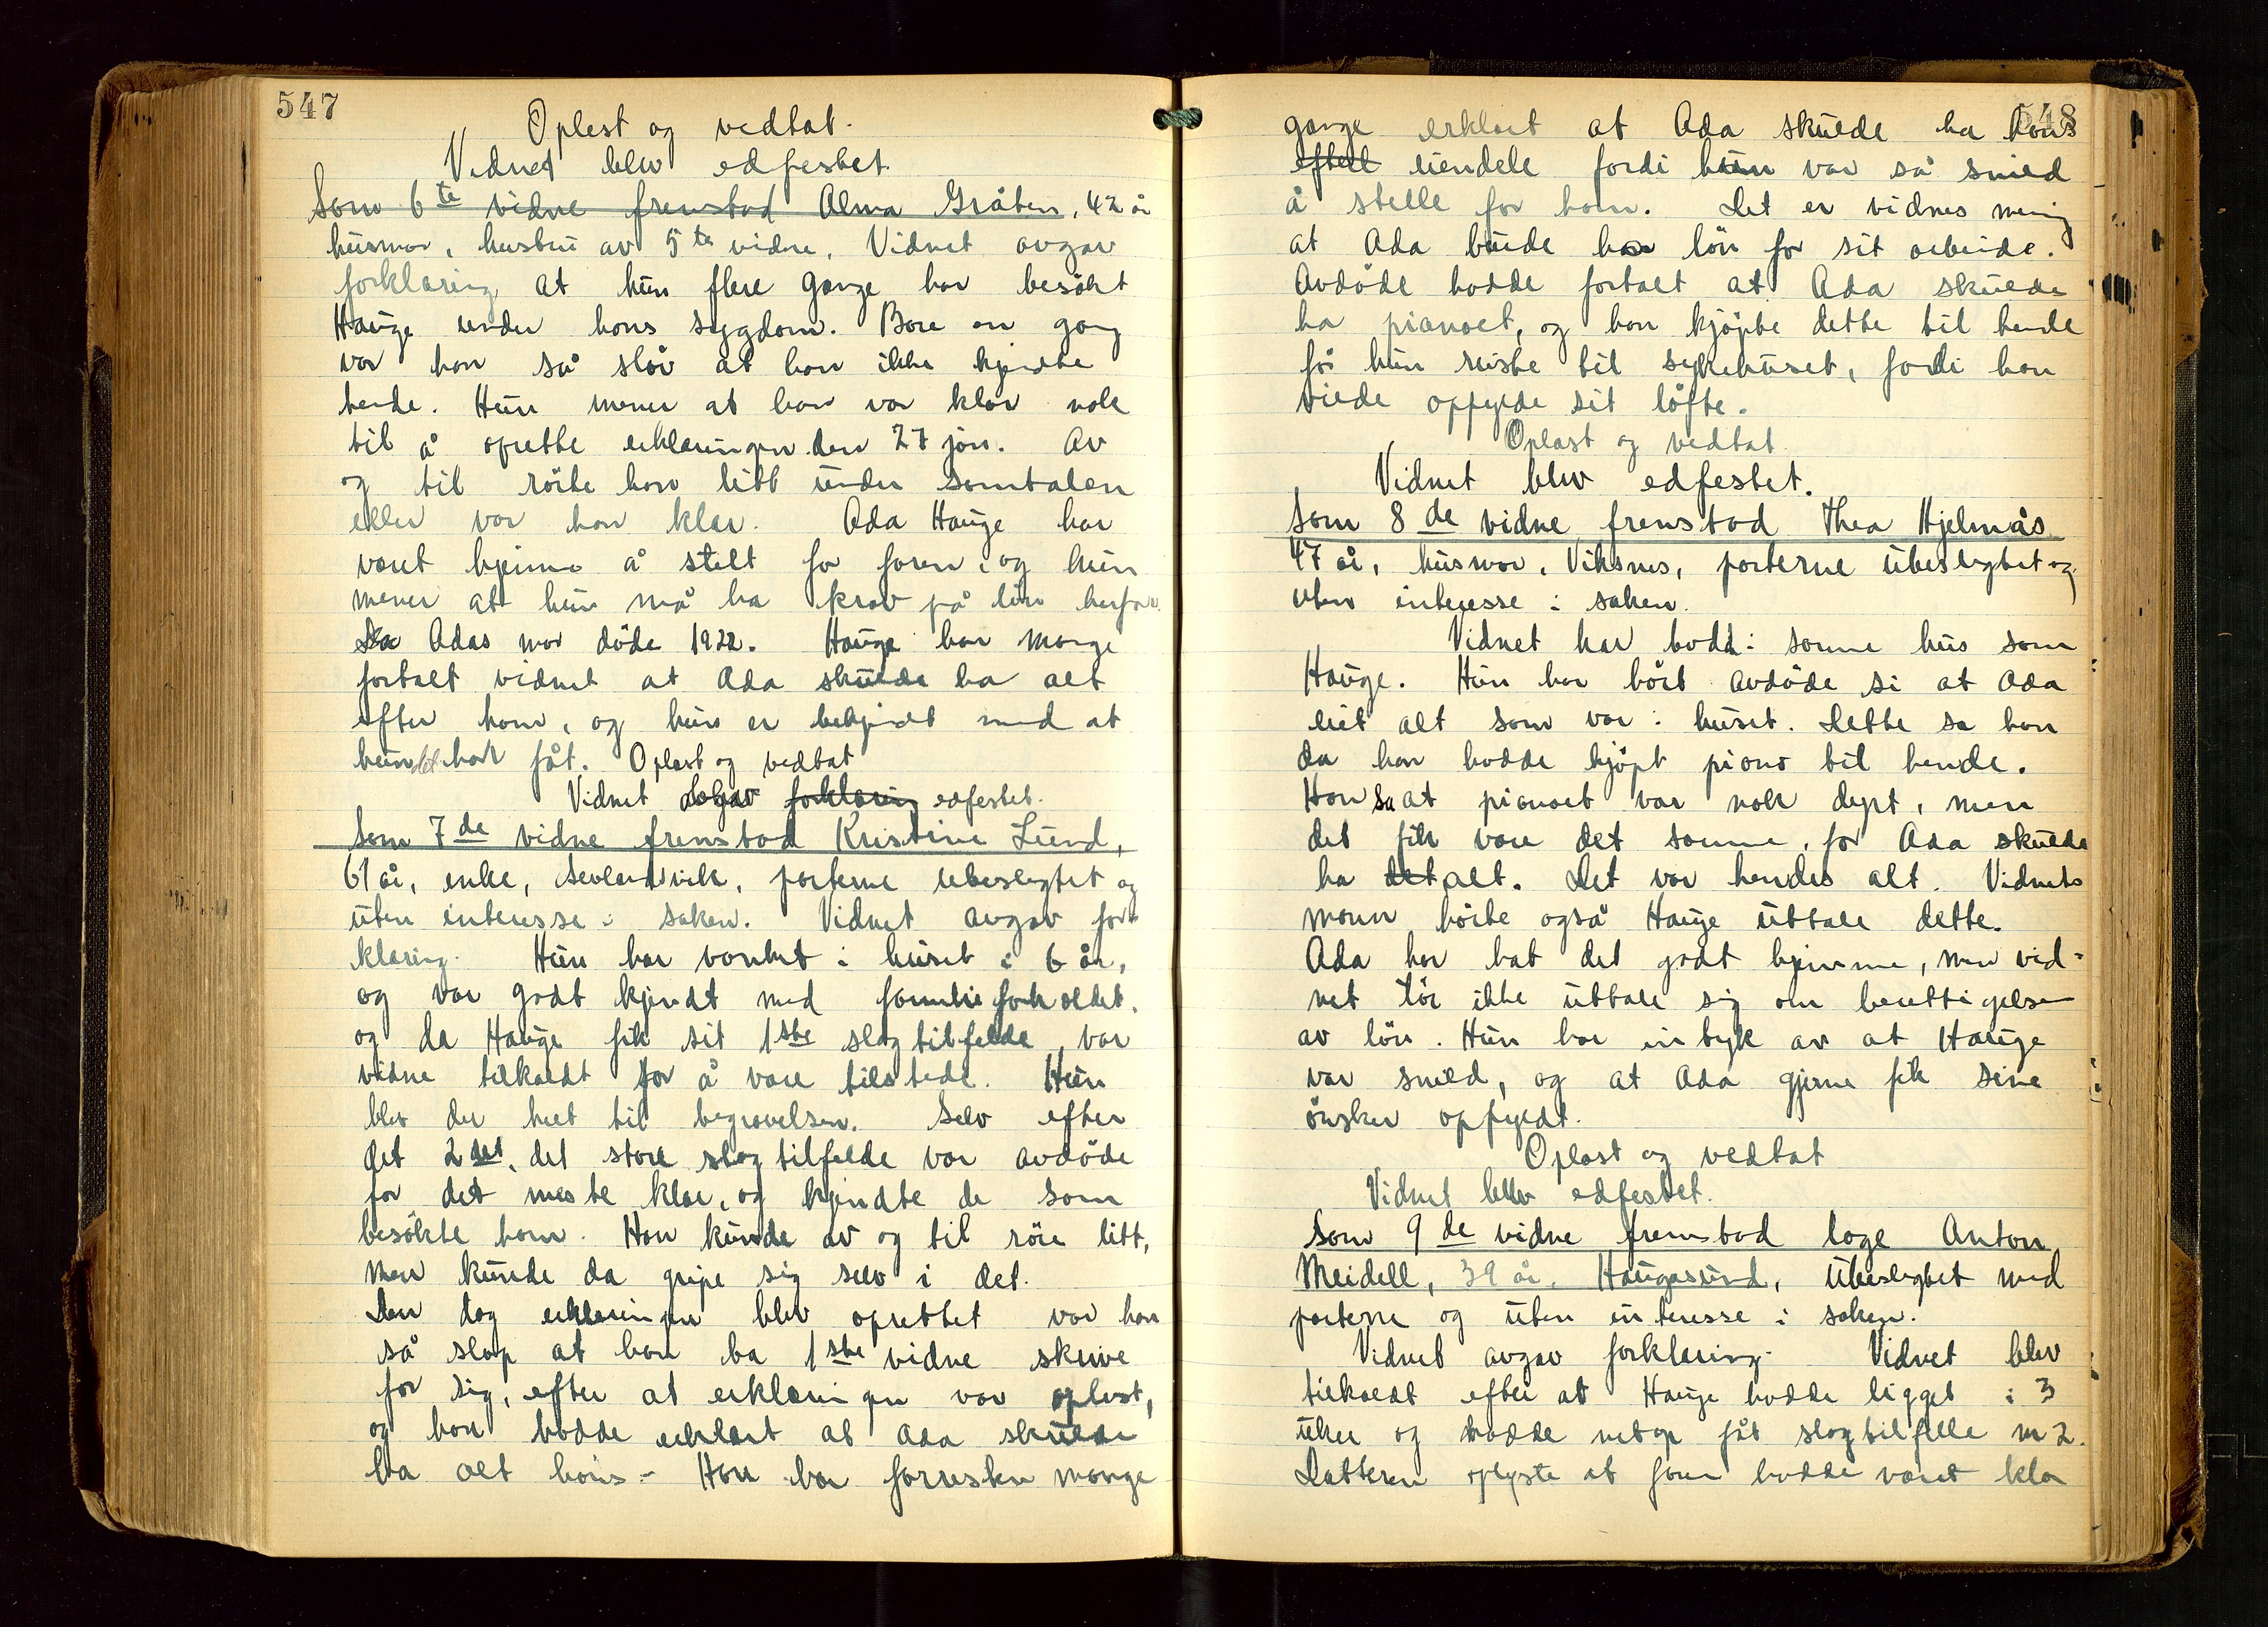 547
Oplest og vedtat.
Vidnet blev edfestet.
Som 6te vidne fremstod Alma Gråten, 42 år
husmor, hustru av 5te vidne. Vidnet avgav
forklaring at hun flere gange har besøkt
Hauge under hans sygdom. Bare en gang
var han så sløv at han ikke kjendte
hende. Hun mener at han var klar nok
til å oprette erklæringen den 27 jan. Av
og til rørte han litt under samtalen
eller var han klar. Ada Hauge har
været hjemme å stelt for faren, og hun
mener at hun må ha krav på løn herfor.
Da Adas mor døde 1922. Hauge har mange
fortalt vidnet at Ada skulde ha alt
efter ham, og hun er bekjendt med at
hun det har fåt. Oplest og vedtat
Vidnet avgav forklaring edfestet.
Som 7de vidne fremstod Kristine Lund,
61 år, enke, Sevlandsvik, parterne ubeslegtet og
uten interesse i saken. Vidnet avgav for
klaring. Hun har vanket i huset i 6 år,
og var godt kjendt med familieforholdet,
og da Hauge fik sit 1ste slagtilfelde, var
vidne tilkaldt for å være tilstede. Hun
blev der helt til begravelsen. Selv efter
det 2det, det store slagtilfelde var avdøde
for det meste klar, og kjendte de som
besøkte ham. Han kunde av og til røre litt,
men kunde da gripe sig selv i det.
Den dag erklæringen blev oprettet var han
så slap at han ba 1ste vidne skrive
for sig, efter at erklæringen var oplest,
og han hadde erklært at Ada skulde
ha alt hans. Han har forresten mange
548
gange erklært at Ada skulde ha hans
efterl eiendele fordi hun var så snild
å stelle for ham. Det er vidnes mening
at Ada burde ha løn for sit arbeide.
Avdøde hadde fortalt at Ada skulde
ha pianoet, og han kjøpte dette til hende
før hun reiste til sykehuset, fordi han
vilde opfylde sit løfte.
Oplæst og vedtat.
Vidnet blev edfestet.
Som 8de vidne fremstod Thea Hjelmås
47 år, husmor, Viksnes, parterne ubeslegtet og
uten interesse i saken.
Vidnet har bodd i samme hus som
Hauge. Hun har hørt avdøde si at Ada
eiet alt som var i huset. Dette sa han
da han hadde kjøpt piano til hende.
Han sa at pianoet var nok dyrt, men
det fik være det samme, for Ada skulde
ha det alt. Det var hendes alt. Vidnets
mann hørte også Hauge uttale dette.
Ada har hat det godt hjemme, men vid-
net tør ikke uttale sig om berettigelse
av løn. Hun har intryk av at Hauge
var snild, og at Ada gjerne fik sine
ønsker opfyldt.
Oplæst og vedtat
Vidnet blev edfestet.
Som 9de vidne fremstod læge Anton
Meidell, 39 år, Haugesund, ubeslegtet med
parterne og uten interesse i saken.
Vidnet avgav forklaring. Vidnet blev
tilkaldt efter at Hauge hadde ligget i 3
uker og hadde netop fåt slagtilfelle nr 2.
Datteren oplyste at faren hadde været klar